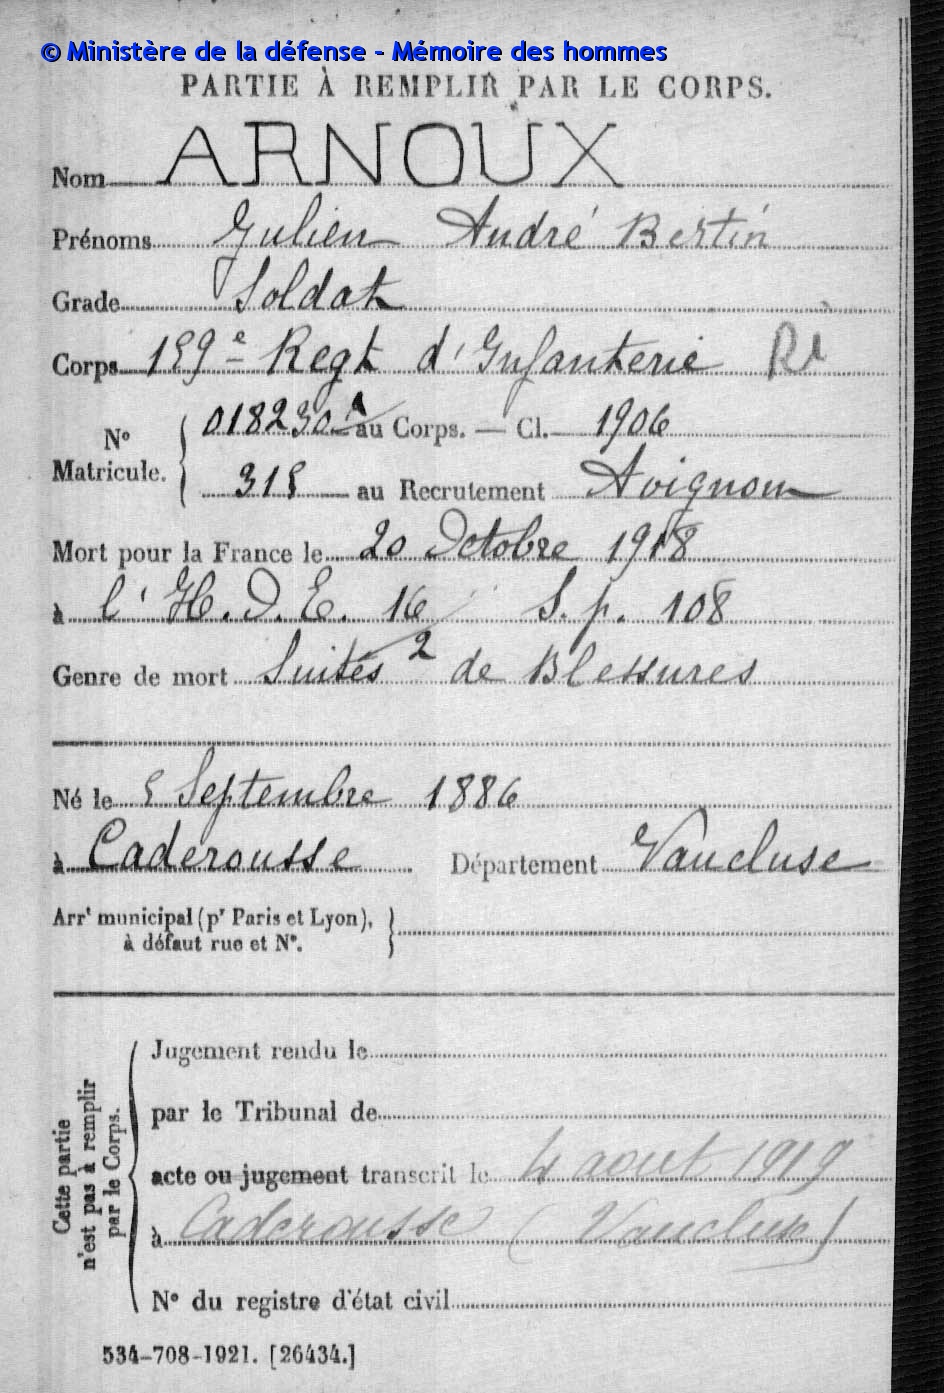 © Ministère de la défense - Mémoire des hommes
PARTIE À REMPLIR PAR LE CORPS.
Nom ARNOUX
Prénoms Julien André Bertin
Grade Soldat
Corps 159e Regt d'Infanterie RI
No Matricule. 018230 A au Corps. — Cl. 1906
315 au Recrutement Avignon
Mort pour la France le 20 Octobre 1918
à l'H.O.E. 16 S.p. 108
2
Genre de mort Suites de Blessures
Né le 5 Septembre 1886
à Caderousse Département Vaucluse
Arrt municipal (pr Paris et Lyon),
à défaut rue et No.
Cette partie
n'est pas à remplir
par le Corps.
Jugement rendu le
par le Tribunal de
acte ou jugement transcrit le 4 aout 1919
à Caderousse (Vaucluse)
No du registre d'état civil
534-708-1921. [26434.]